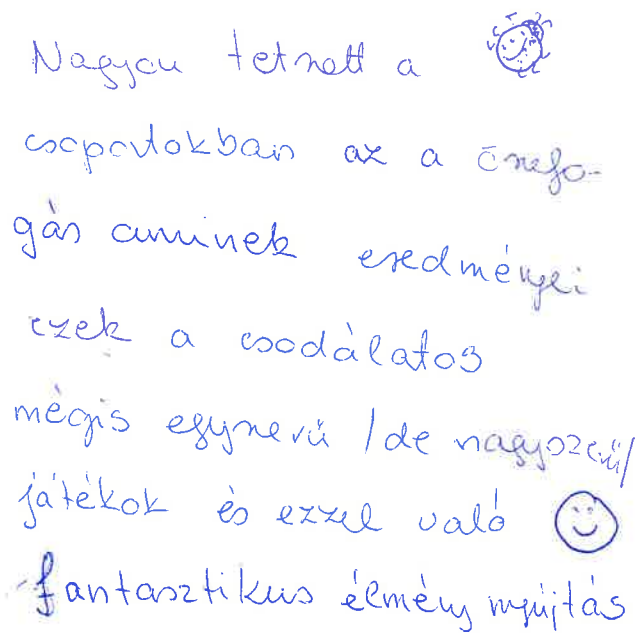 Nagyon tetszett a
csapatokban az a összefo-
gás aminek eredményei
ezek a csodálatos
mégis egyszerű /de nagyszerű/
játékok és ezzel való
fantasztikus élmény nyújtás